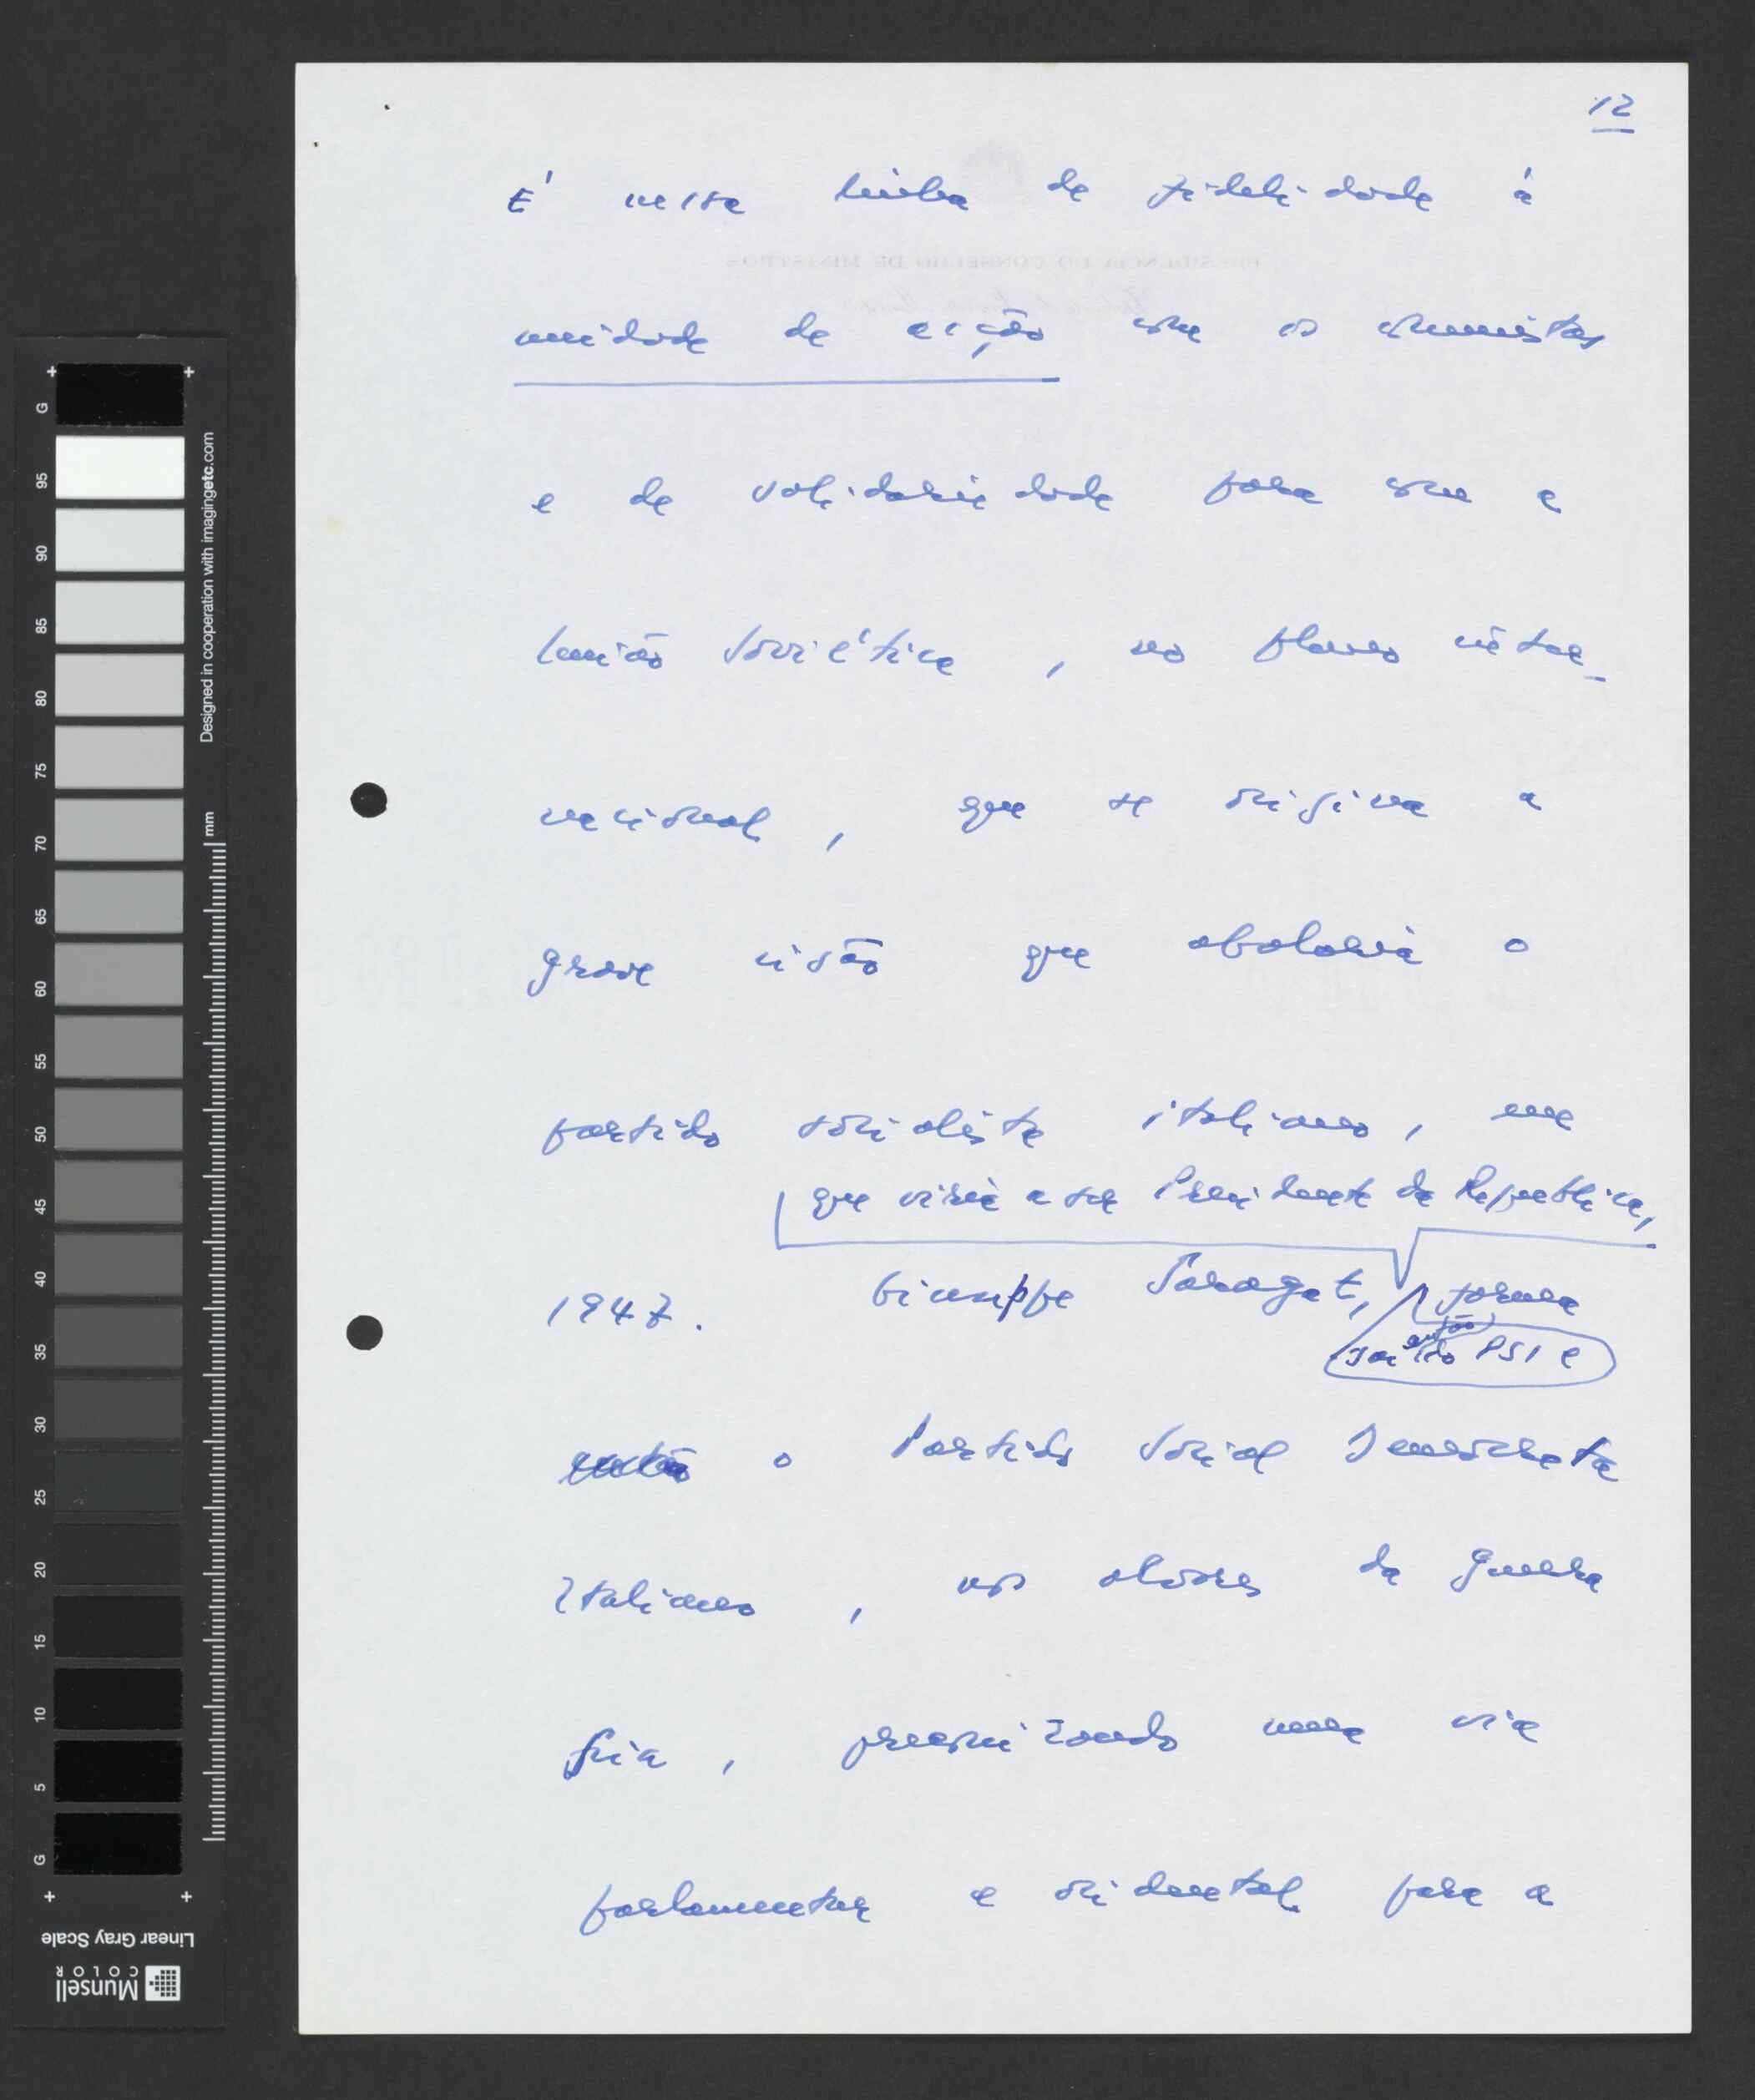 12
É nessa linha de fidelidade à
unidade de acção com os comunistas
e de solidariedade para com a
União Soviética, no plano inter-
nacional, que se origina a
grave cisão que abalaria o
partido socialista italiano, em
que viria a ser Presidente da República,
1947. Giuseppe Saragat, forma
então
sai do PSI e
então o Partido Social Democrata
Italiano, nos alvores da guerra
fria, preconizando uma via
parlamentar e ocidental para a
PRESIDÊNCIA DO CONSELHO DE MINISTROS
Designed in cooperation with imagingetc.com
mm
G 95 90 85 80 75 70 65 60 55 50 45 40 35 30 25 20 15 10 5 G
Linear Gray Scale
Munsell
COLOR